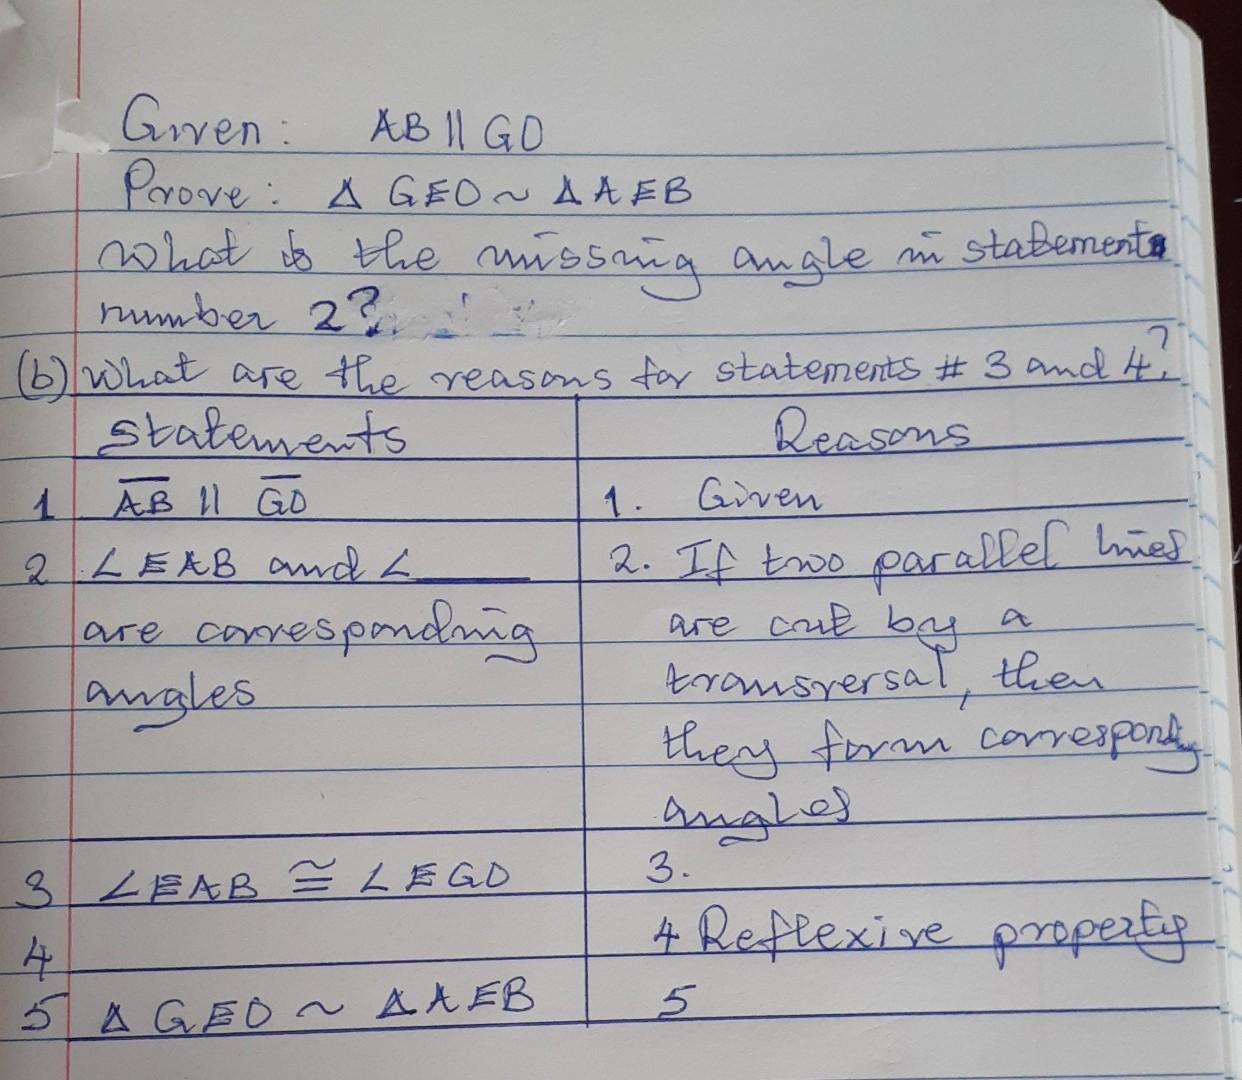 Given: AB || GD
Prove: Δ GED ~ Δ AEB
What is the missing angle in statement
number 2?
(b) What are the reasons for statements # 3 and 4?
Statements Reasons
1 AB || GD 1. Given
2 ∠EAB and ∠____ 2. If two parallel lines
are corresponding are cut by a
angles transversal, then
they form corresponding
angles
3 ∠EAB ≅ ∠EGD 3.
4 4 Reflexive property
5 Δ GED ~ Δ AEB 5